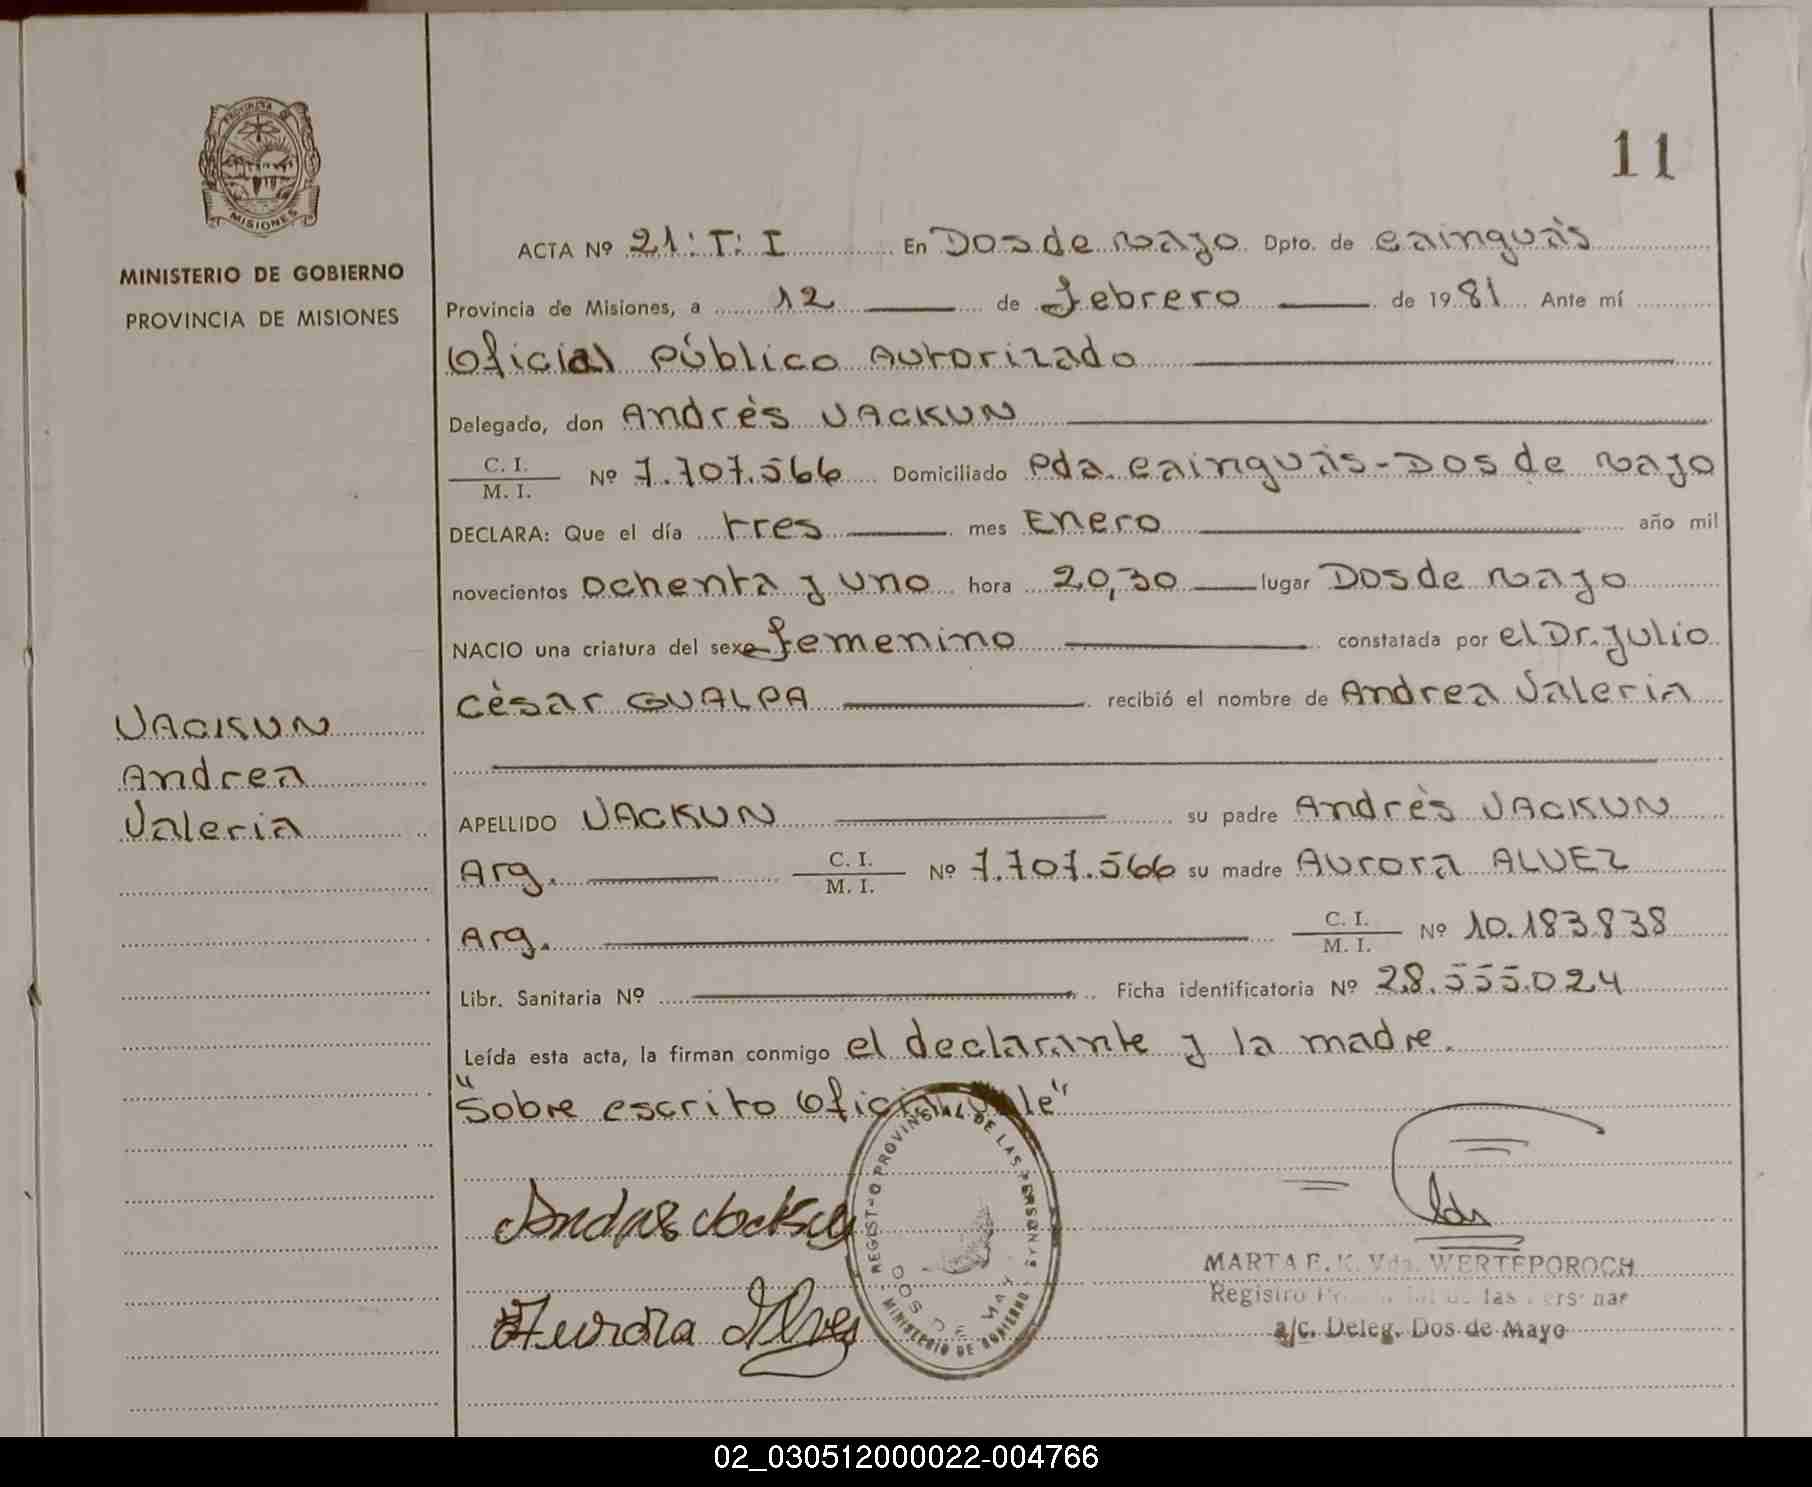 PROVINCIA
MISIONES
MINISTERIO DE GOBIERNO
PROVINCIA DE MISIONES
11
ACTA Nº 21:T:I En Dos de Mayo Dpto. de Cainguàs
Provincia de Misiones, a 12 de febrero de 1981 Ante mí
Oficial Público Autorizado
Delegado, don Andrès JACKUN
C. I. / M. I. Nº 7.707.566 Domiciliado Pda. Cainguàs-Dos de Mayo
DECLARA: Que el día tres mes Enero año mil
novecientos ochenta y uno hora 20,30 lugar Dos de Mayo
NACIO una criatura del sexo femenino constatada por el Dr. Julio
Cèsar GUALPA recibió el nombre de Andrea Valeria
JACKUN
Andrea
Valeria
APELLIDO JACKUN su padre Andrès JACKUN
Arg. C. I. / M. I. Nº 7.707.566 su madre Aurora ALVEZ
Arg. C. I. / M. I. Nº 10.183.838
Libr. Sanitaria Nº Ficha identificatoria Nº 28.555.024
Leída esta acta, la firman conmigo el declarante y la madre.
"Sobre escrito Oficial vale"
REGISTRO PROVINSIAL DE LAS PERSONAS
MINISTERIO DE GOBIERNO
Aurora Alves
MARTA E. K. Vda. WERTEPOROCH
Registro Provincial de las Personas
a/c. Deleg. Dos de Mayo
02_030512000022-004766